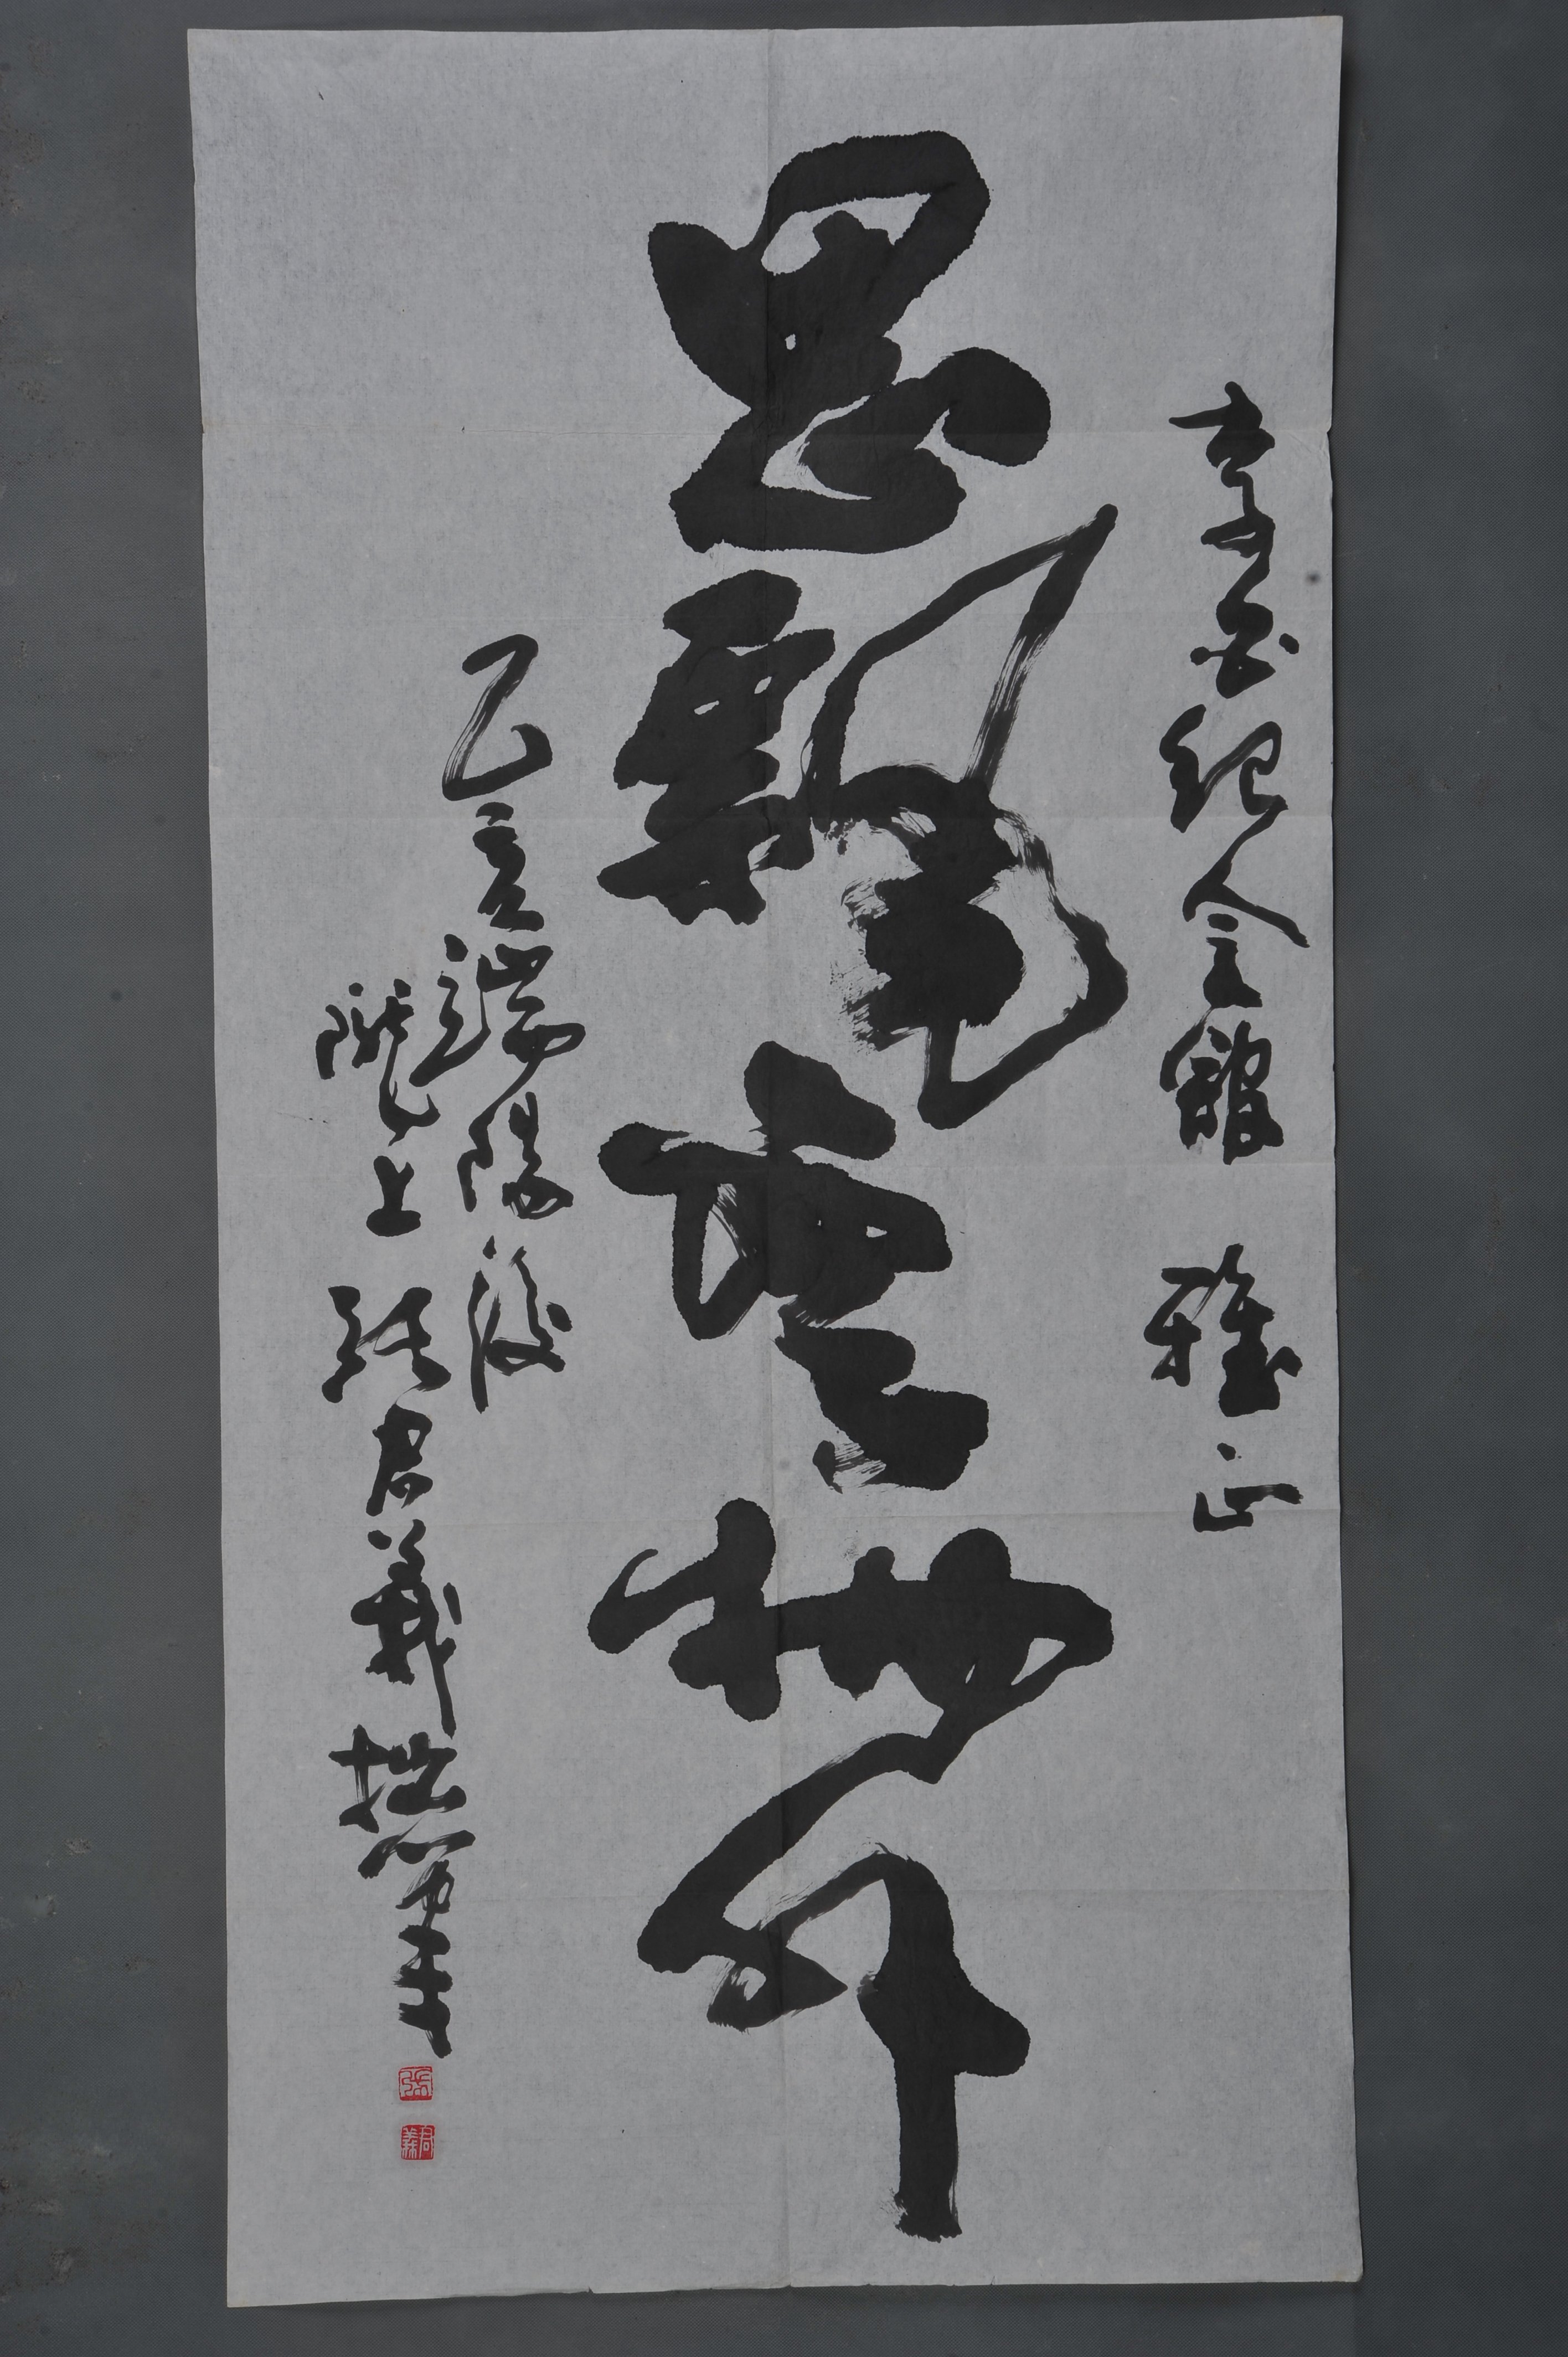 李白紀念館 雅正
思飄雲物外
乙亥端陽後
隴上張君義拙筆
張
君義